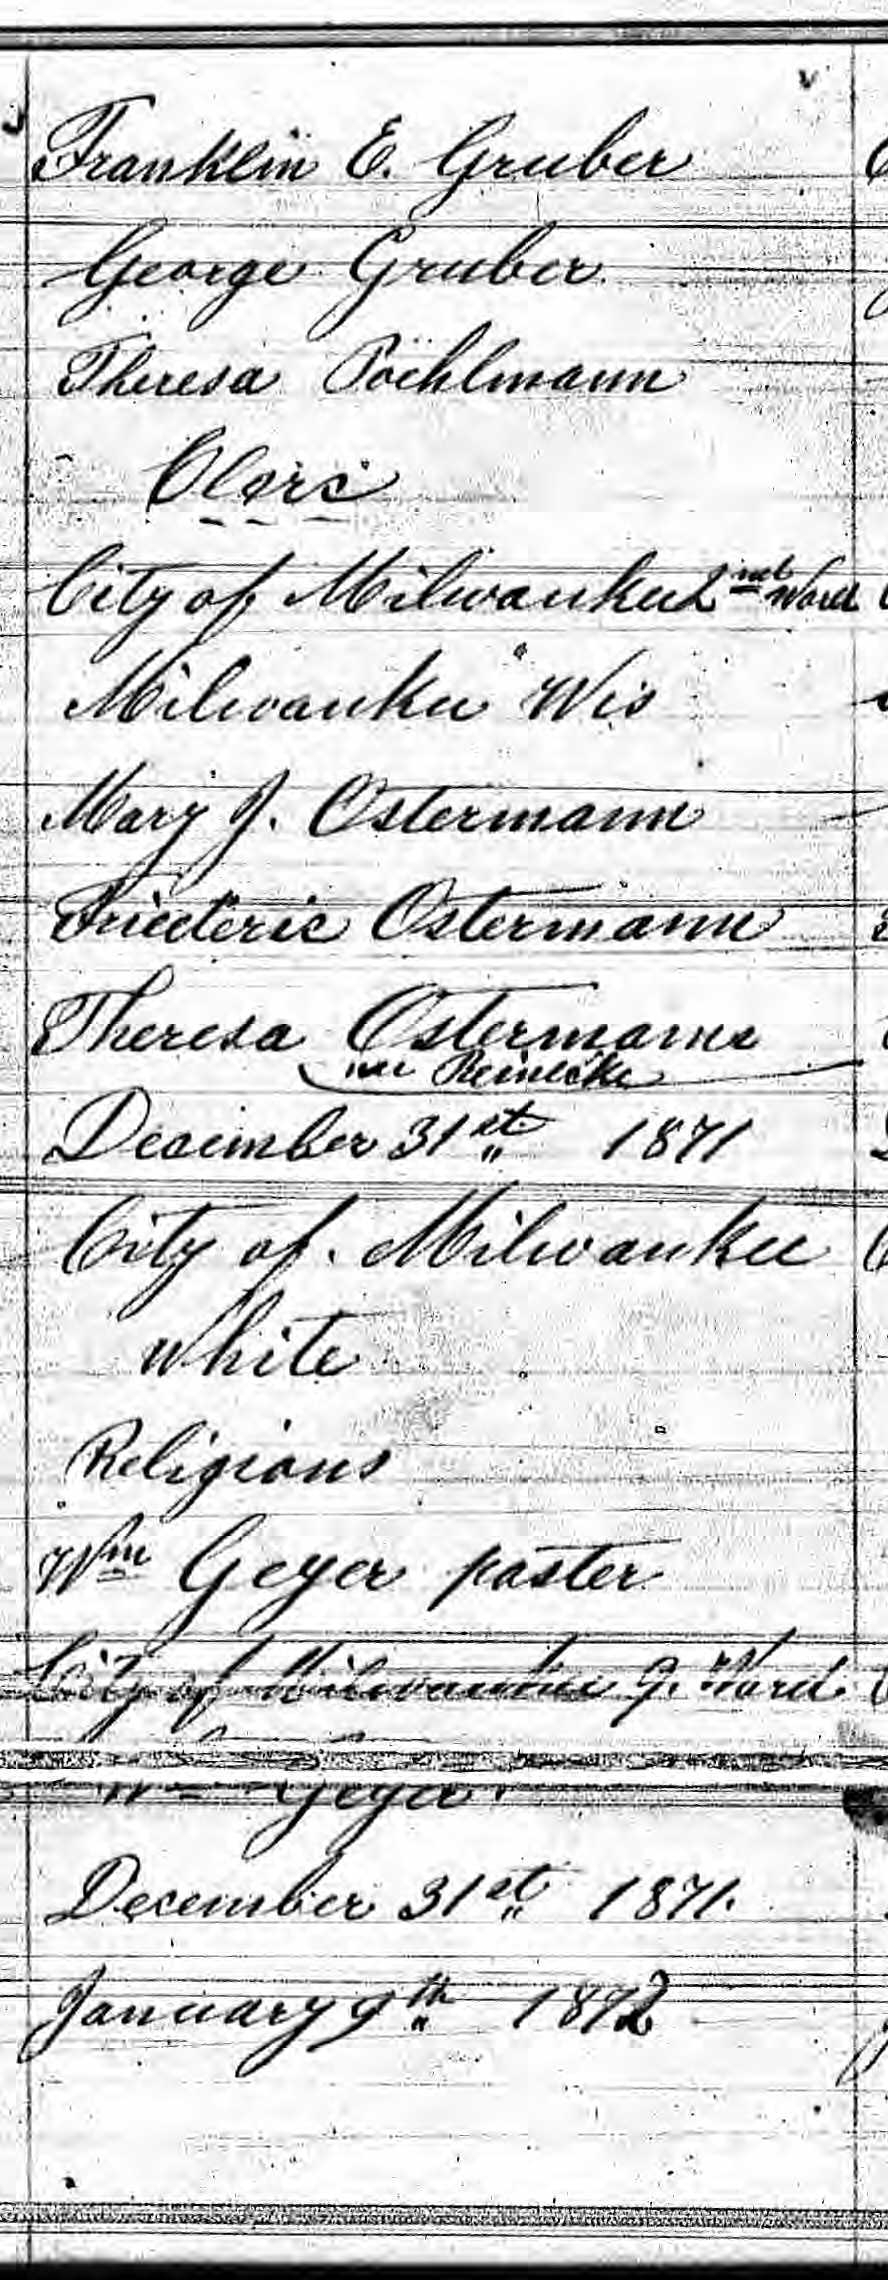 Franklin E. Gruber
George Gruber
Theresa Pöehlmann
Clerc
City of Milwaukee 2nd Ward
Milwaukee Wis
Mary J. Ostermann
Friederic Ostermann
Theresa Ostermann
nee Reinecke
December 31st 1871
City of Milwaukee
White
Religious
Wm Geyer paster
City of Milwaukee 9. Ward.
Wm Geyer.
December 31st 1871.
January 9th 1872